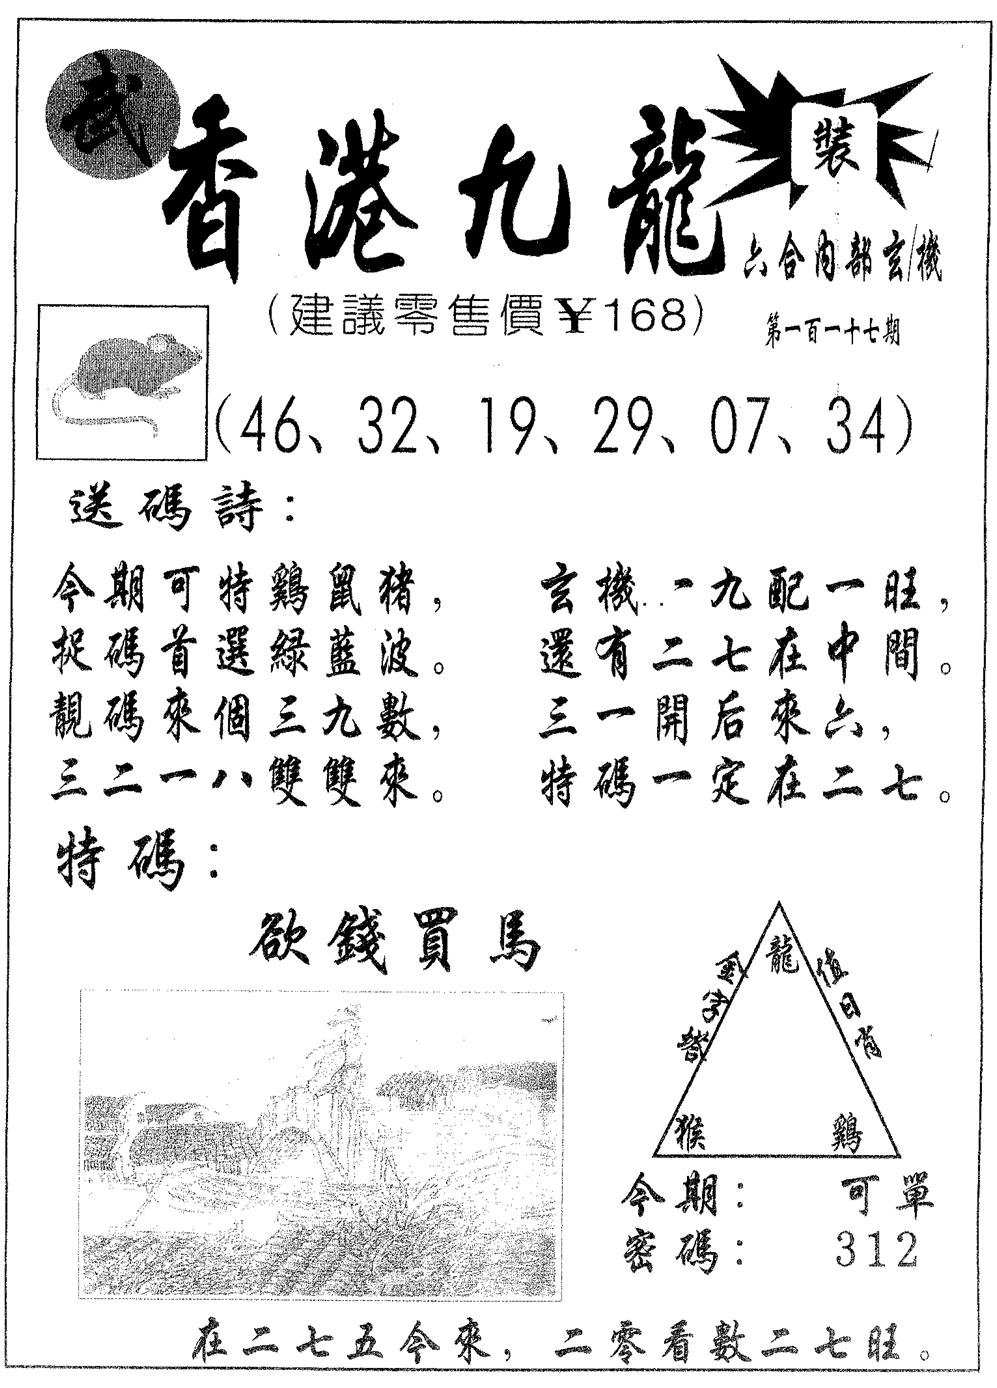 武
香港九龍
裝
六合內部玄機
(建議零售價¥168)
第一百一十七期
(46、32、19、29、07、34)
送碼詩：
今期可特鷄鼠猪，
捉碼首選緑藍波。
靚碼來個三九數，
三二一八雙雙來。
玄機一九配一旺，
還有二七在中間。
三一開后來六，
特碼一定在二七。
特碼：
欲錢買馬
龍
金字塔
值日肖
猴
鷄
今期： 可單
密碼： 312
在二七五今來，二零看數二七旺。